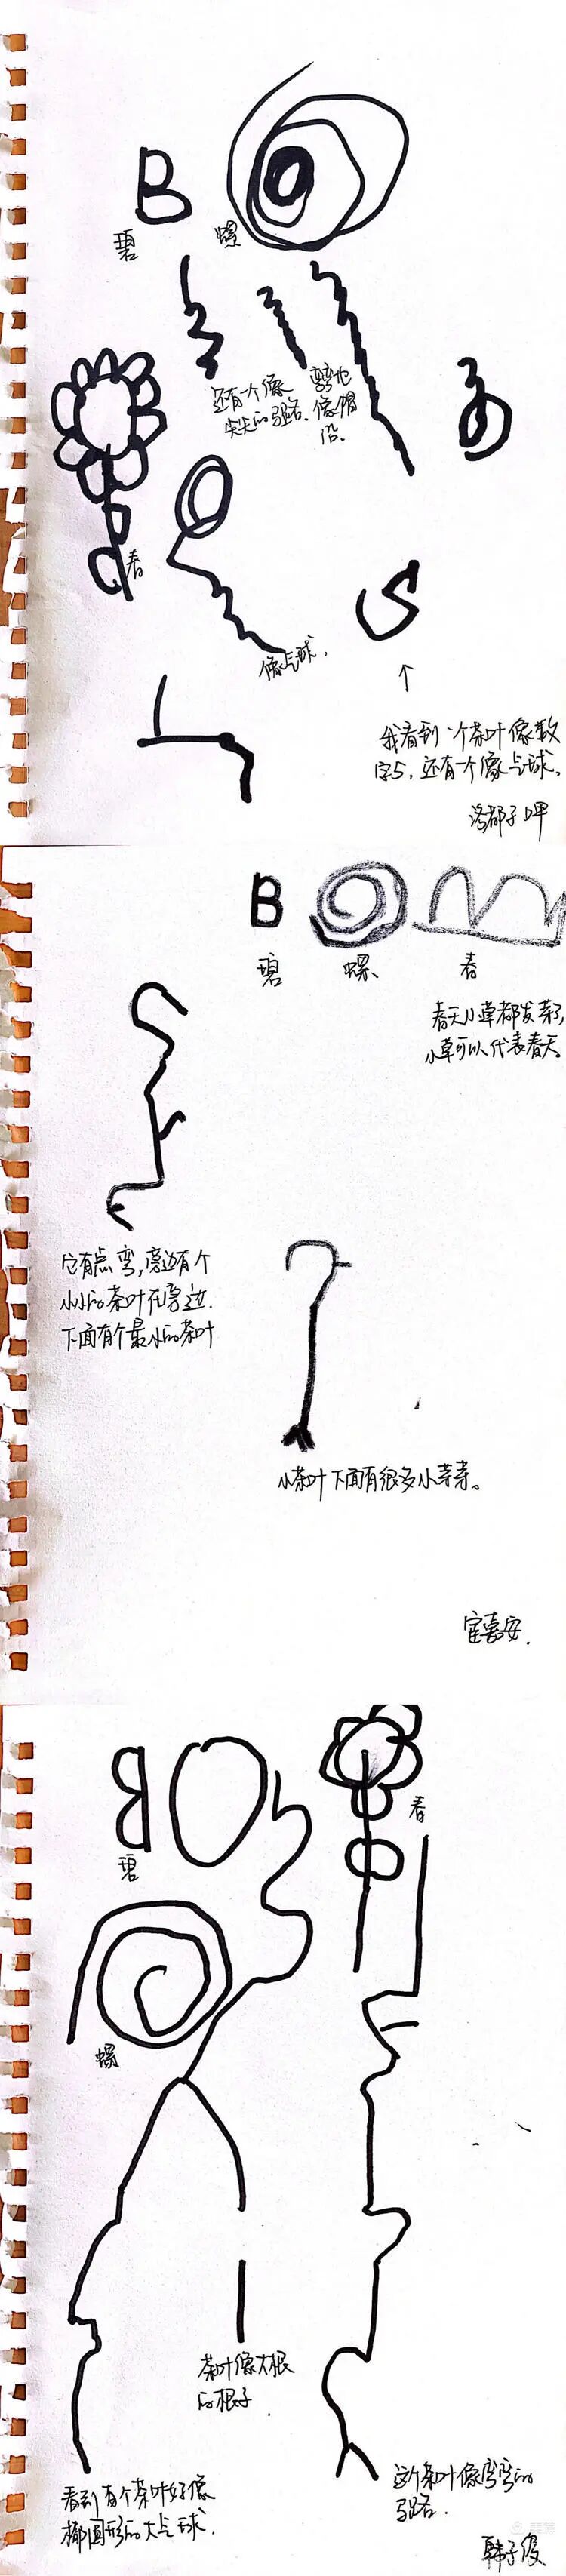 B
碧 螺
还有一个像
尖尖的马路.
弯弯也
像楼
沿.
春
像气球,
S
↑
我看到一个茶叶像数
字5, 还有一个像气球,
B
碧 螺 春
春天小草都发芽了,
小草可以代表春天.
它有点弯,旁边有个
小小的茶叶在旁边.
下面有个最小的茶叶
小茶叶下面有很多小芽芽。
嘉安.
B
碧
春
螺
茶叶像大根
的根子.
看到有个茶叶好像
椭圆形的大气球.
这个茶叶像弯弯的
马路.
韩子俊